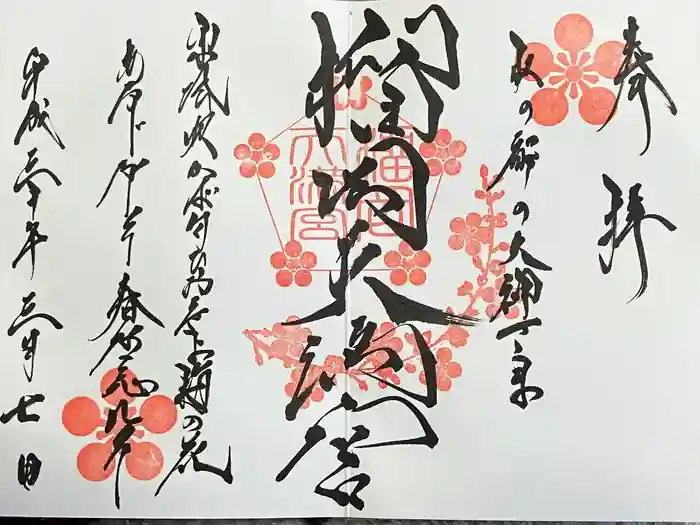 奉拝
杜の都の天神さま
榴岡天満宮
東風吹かば匂ひおこせよ梅の花
あるじなしとて春な忘れそ
平成三十年三月七日